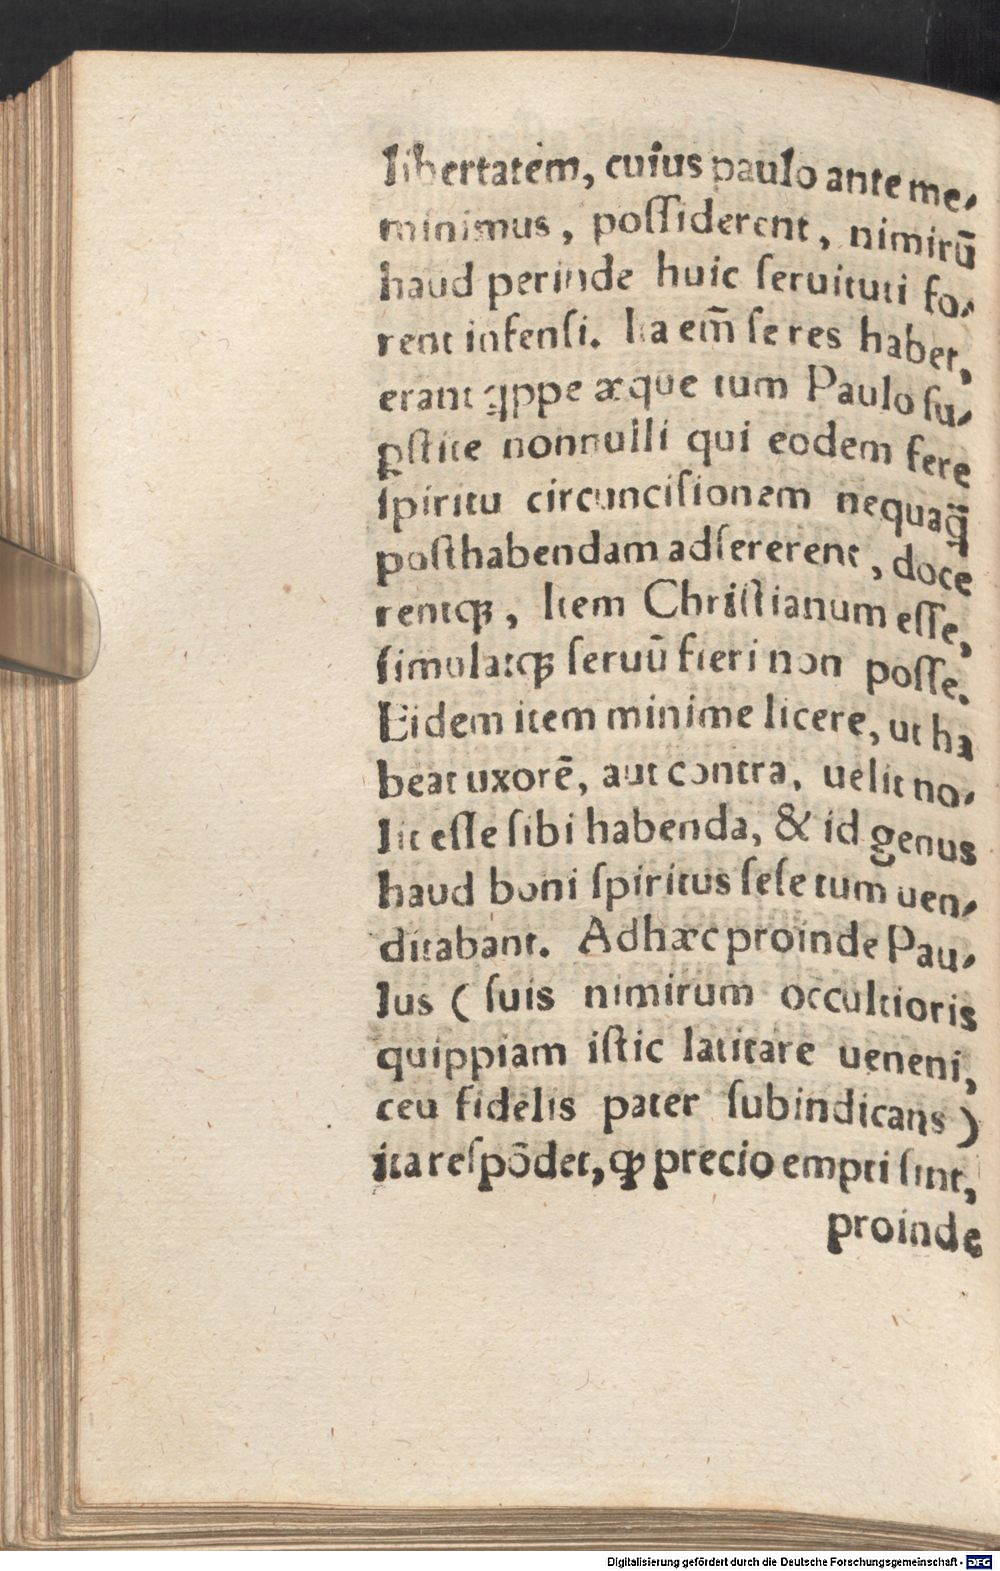 libertatem, cuius paulo ante me-
minimus, poſſiderent, nimirū
haud perinde huic ſeruituti fo-
rent infenſi. Ita em̄ ſe res habet,
erant q̣ppe æque tum Paulo ſu-
ꝑſtite nonnulli qui eodem fere
ſpiritu circunciſionem nequaq̄
poſthabendam adſererent, doce
rentqꝫ, Item Chriſtianum eſſe,
ſimulatqꝫ ſeruū fieri non poſſe.
Eidem item minime licere, ut ha
beat uxorē, aut contra, uelit no-
lit eſſe ſibi habenda, & id genus
haud boni ſpiritus ſeſe tum uen-
ditabant. Ad hæc proinde Pau-
lus ( ſuis nimirum occultioris
quippiam iſtic latitare ueneni,
ceu fidelis pater ſubindicans )
ita reſpōdet, ꝙ precio empti ſint,
proinde
Digitalisierung gefördert durch die Deutsche Forschungsgemeinschaft - DFG